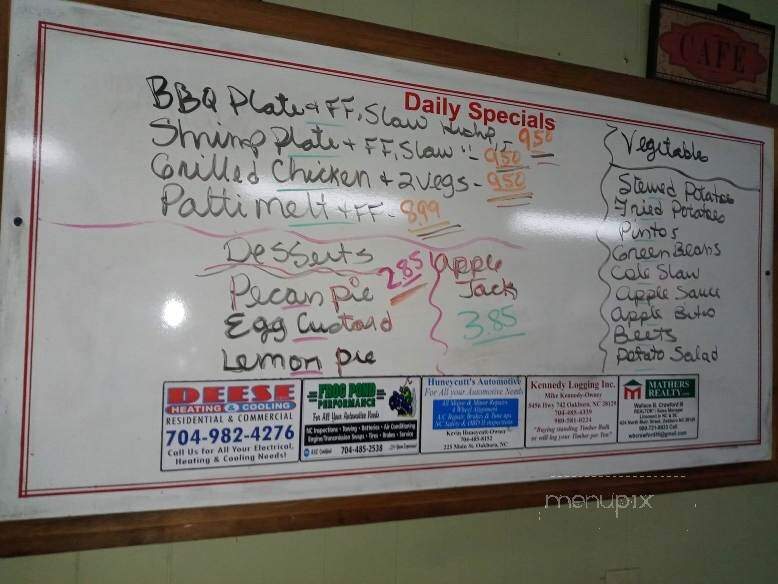 CAFÉ
Daily Specials
BBQ Plate + FF, Slaw Hushp 950
Shrimp Plate + FF, Slaw " - 950
Grilled Chicken + 2 Vegs - 950
Patti melt + FF - 899
Desserts
Pecan pie 2.85
Egg Custard
Lemon pie
Apple
Jacks
3.85
Vegetables
Stewed Potatoes
Fried Potatoes
Pintos
Green Beans
Cole Slaw
Apple Sauce
Apple Bites
Beets
Potato Salad
DEESE
HEATING & COOLING
RESIDENTIAL & COMMERCIAL
704-982-4276
Call Us for All Your Electrical,
Heating & Cooling Needs!
FROG POND
PERFORMANCE
For All Your Automotive Needs
NC Inspections • Towing • Batteries • Air Conditioning
Engine/Transmission Swaps • Tires • Brakes • Service
704-485-2538
Huneycutt's Automotive
For All your Automotive Needs
All Major & Minor Repairs
4 Wheel Alignment
A/C Repair, Brakes & Tune ups
NC Safety & OBD II Inspections
Kevin Huneycutt-Owner
704-485-8192
225 Main St. Oakboro, NC
Kennedy Logging Inc.
Mike Kennedy-Owner
8456 Hwy 742 Oakboro, NC 28129
704-485-4339
980-581-0221
"Buying standing Timber Bulk
or will log your Timber per Ton"
MATHERS
REALTY.com
Wallace B. Crawford III
REALTOR / Sales Manager
Licensed in NC & SC
424 North Main Street, Oakboro NC 28129
wbcrawfordiii@gmail.com
menupix